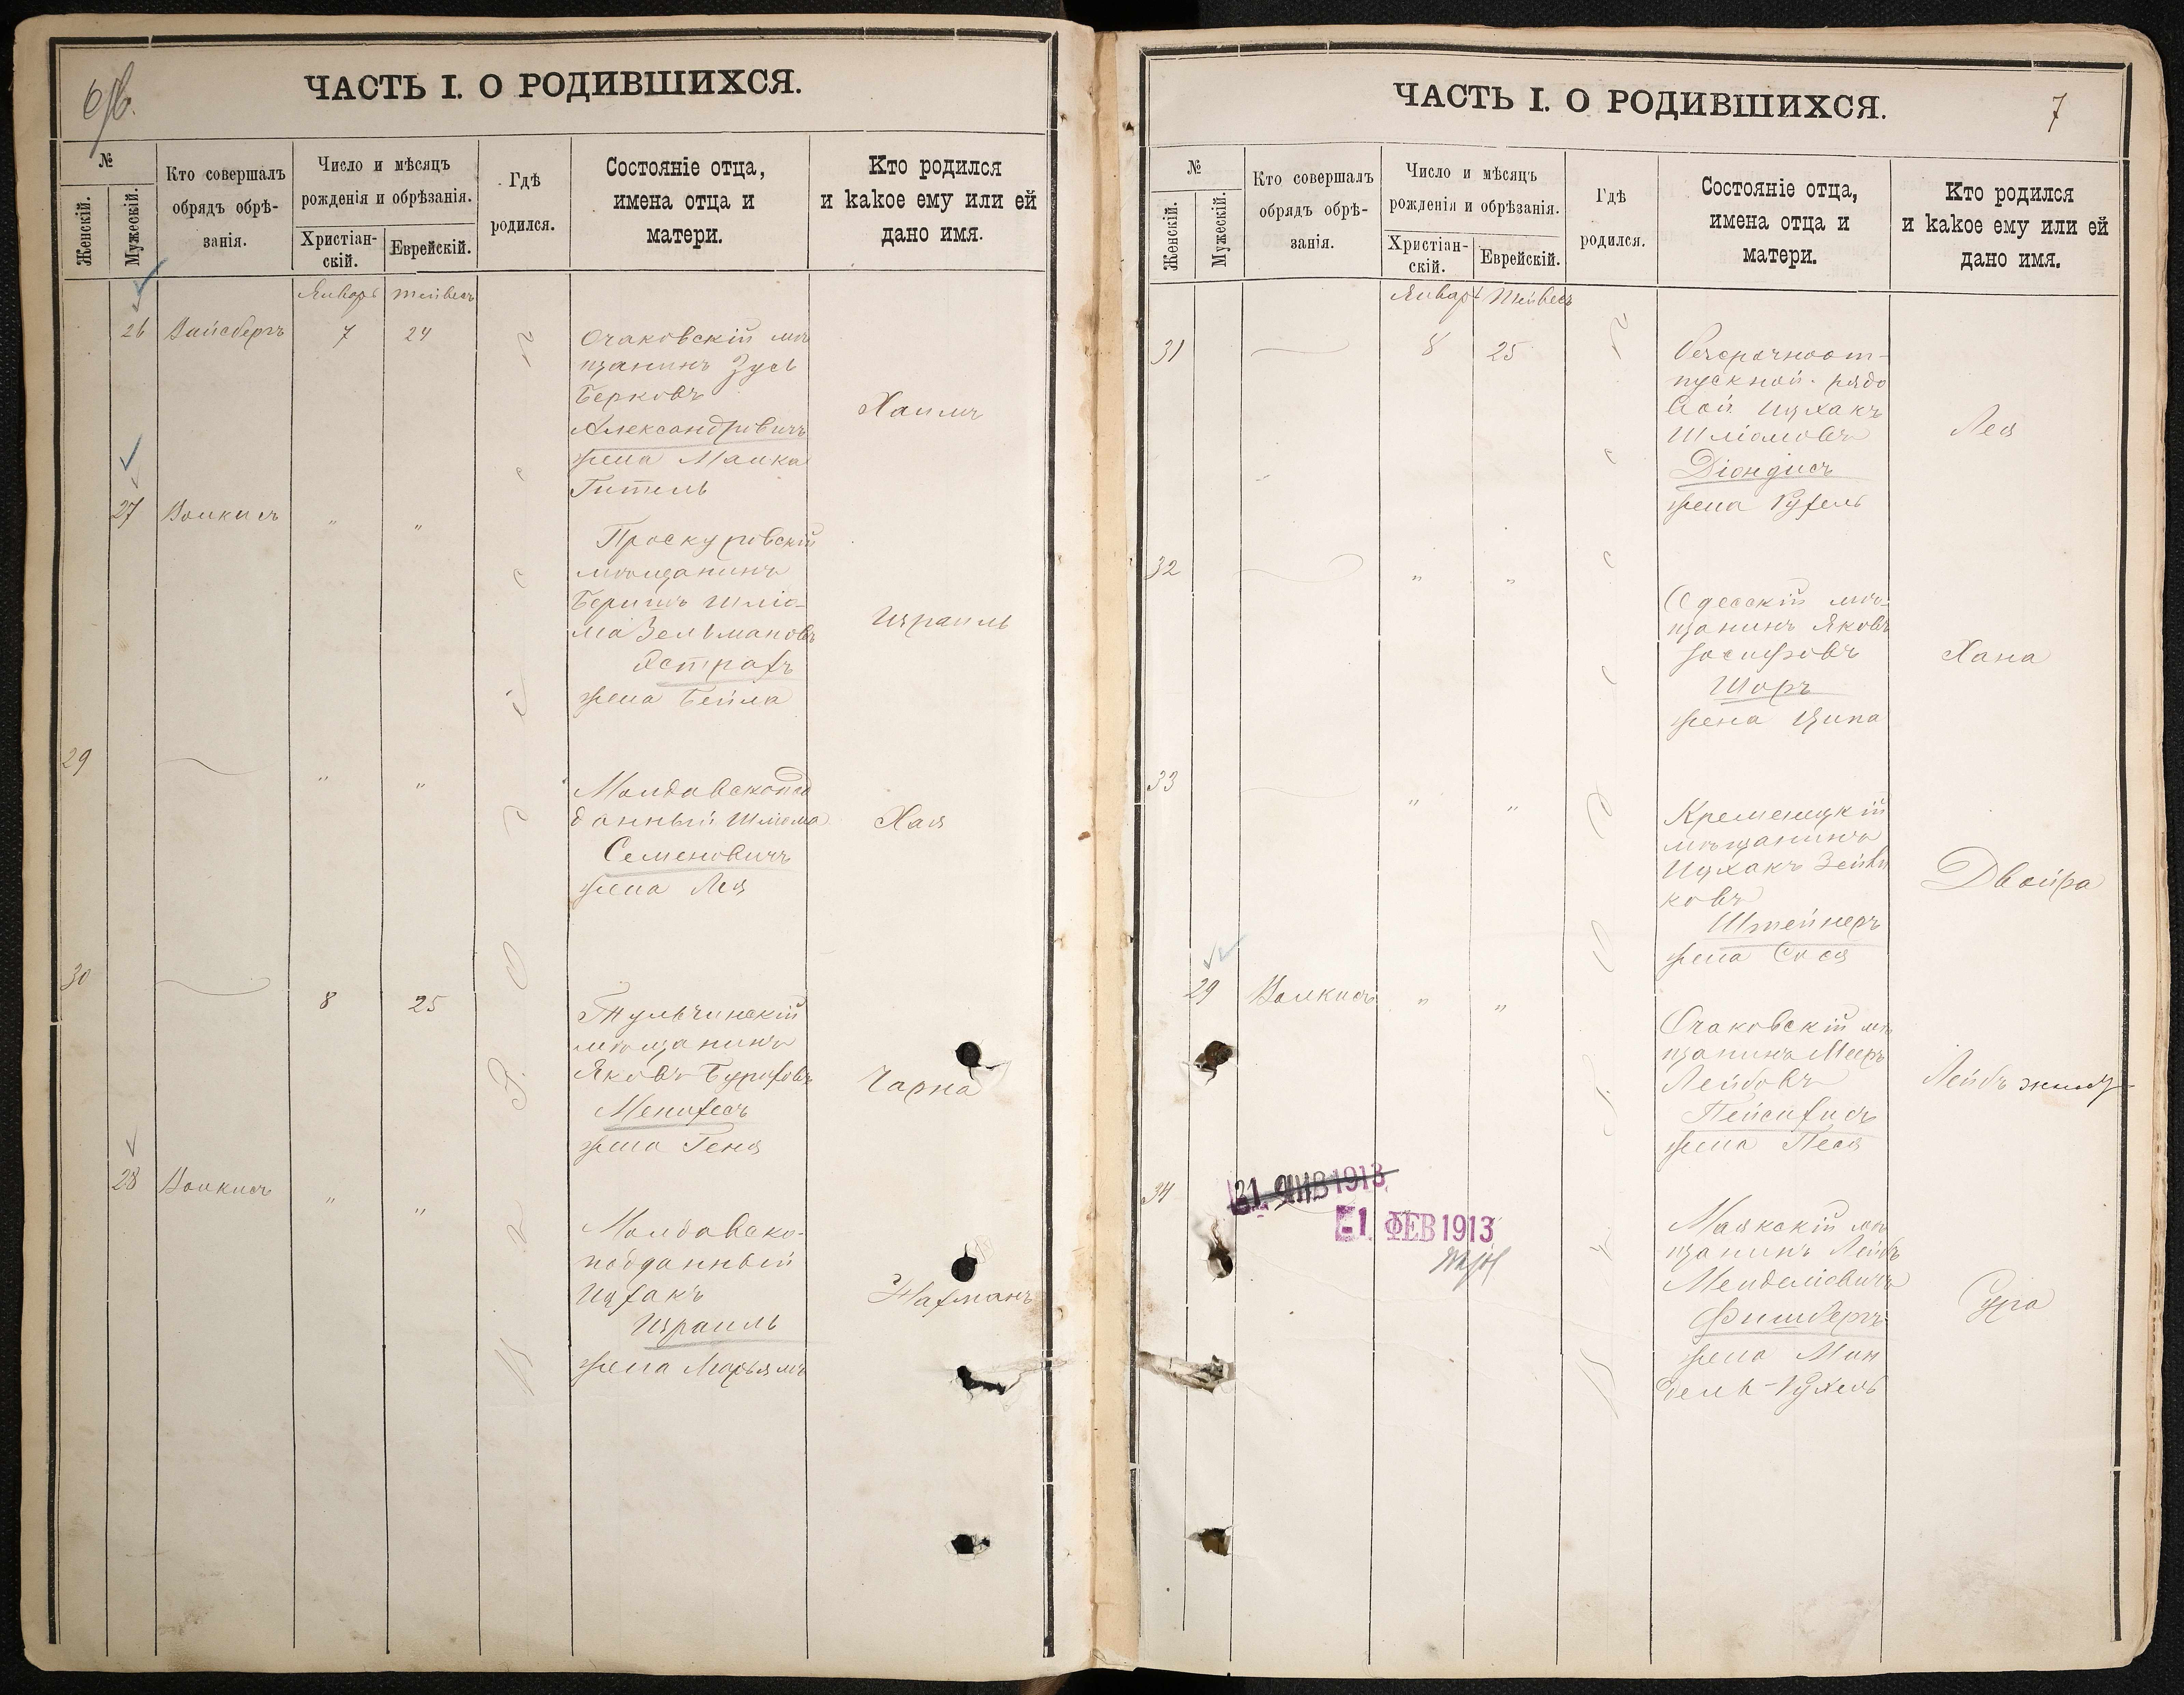 6об.
ЧАСТЬ I. О РОДИВШИХСЯ.
№
Женскій.
Мужескій.
Кто совершалъ
обрядъ обрѣ-
занія.
Число и мѣсяцъ
рожденія и обрѣзанія.
Христіан-
скій.
Еврейскій.
Гдѣ
родился.
Состояніе отца,
имена отца и
матери.
Кто родился
и какое ему или ей
дано имя.
Январь Тейвесъ
26 Вайсбергъ 7 24
Очаковскій мѣ
щанинъ Зусь
Берковъ
Александровичъ
жена Малка
Гитель
Хаимъ
27 Волкисъ " "
Проскуровскій
мѣщанинъ
Беришъ Шлiо-
ма Зельмановъ
Ястрахъ
жена Бейла
Израиль
29 " "
Молдавскопод
данный Шлема
Семеновичъ
жена Лея
Хая
30 8 25
Тульчинскій
мѣщанинъ
Яковъ
жена Геня
Чарна
28 Волкисъ " "
Молдавско-
подданный
Ицхакъ
Израиль
жена Марьямъ
Нахманъ
ЧАСТЬ I. О РОДИВШИХСЯ.
7
№
Женскій.
Мужескій.
Кто совершалъ
обрядъ обрѣ-
занія.
Число и мѣсяцъ
рожденія и обрѣзанія.
Христіан-
скій.
Еврейскій.
Гдѣ
родился.
Состояніе отца,
имена отца и
матери.
Кто родился
и какое ему или ей
дано имя.
Январь Тейвесъ
31 8 25
Безсрочноот-
пускной рядо
вой Ицхакъ
Шліомовъ
Діондисъ
жена Рухель
Лея
32 " "
Одесскій мѣ-
щанинъ Яковъ
Іосифовъ
Шоръ
жена Ципа
Хана
33 " "
Кременецкій
мѣщанинъ
Ицхакъ Зейли
ковъ
Штейнеръ
жена Сося
Двойра
29 Волкисъ " "
Очаковскій мѣ
щанинъ Мееръ
Лейбовъ
Пейсихисъ
жена Песя
Лейбъ
34
31 ЯНВ 1913
-1 ФЕВ 1913
Маякскій мѣ
щанинъ Лейбъ
Менделіовичъ
Фишбергъ
жена Мин
дель-Рухель
Сура